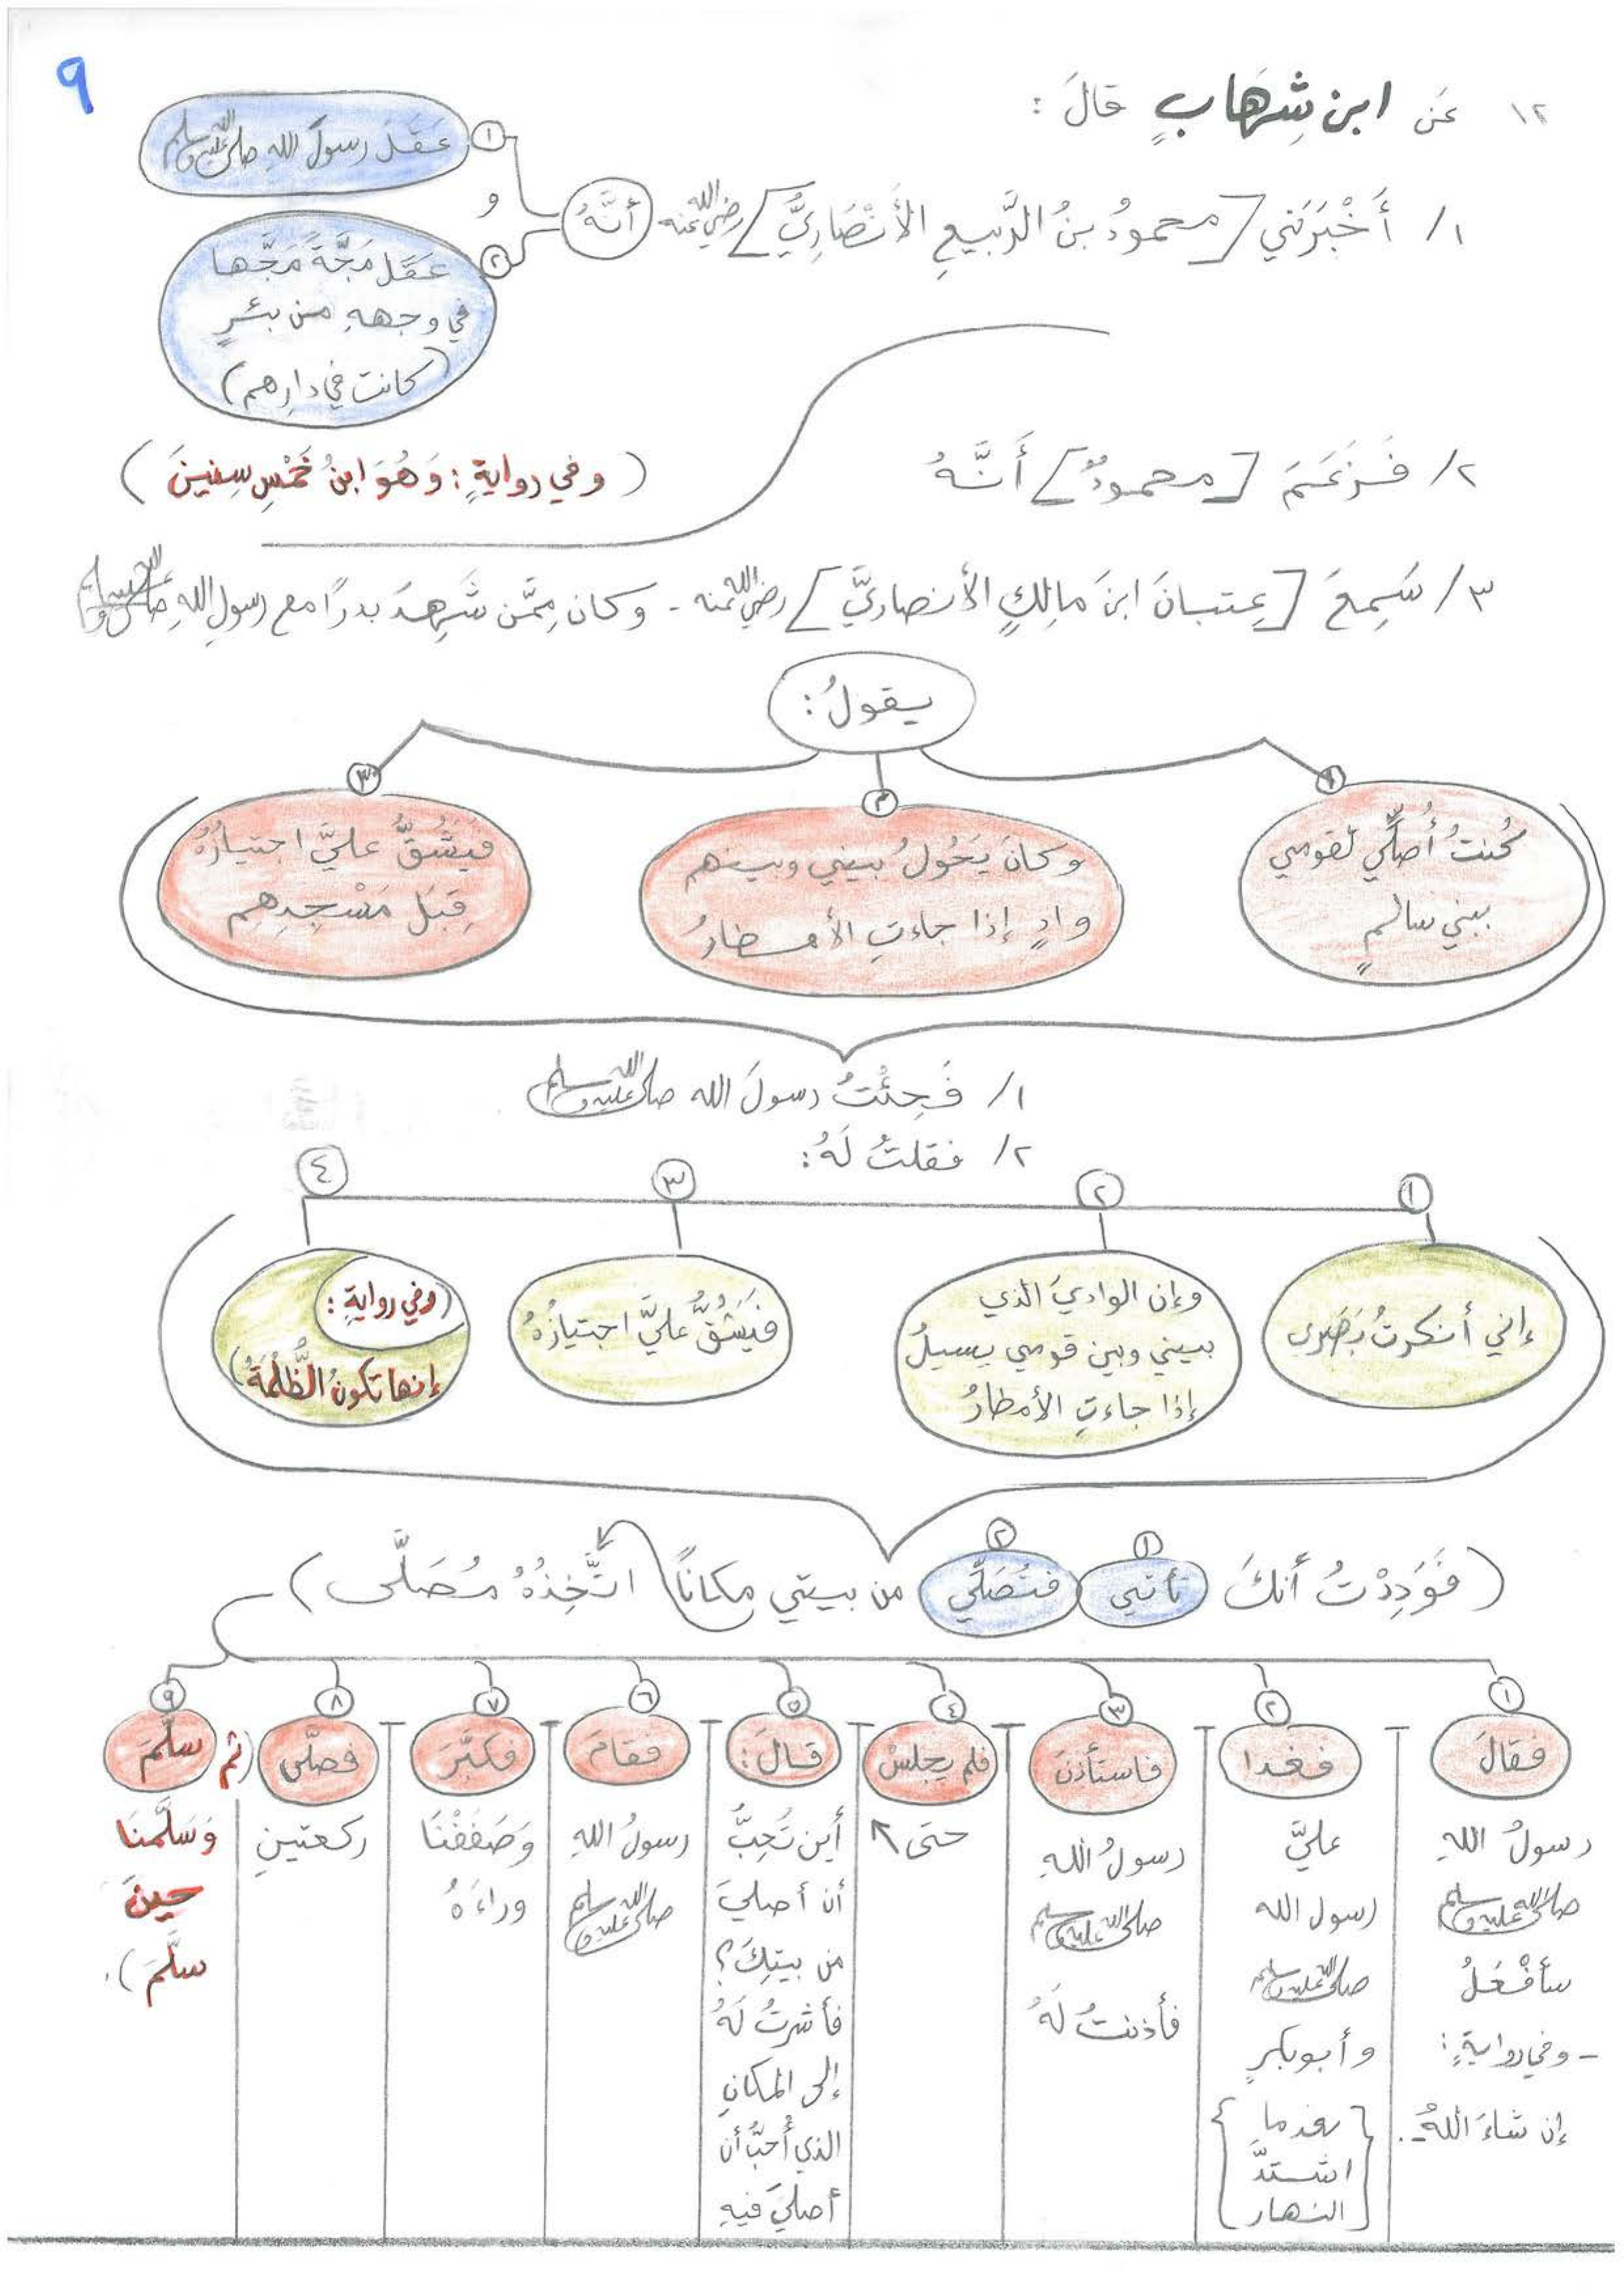 ٩
١٢ عَن ابن شِهَابٍ قالَ :
١/ أَخْبَرَني [محمودُ بنُ الرَّبيعِ الأَنْصَارِيُّ] رضي الله عنه أنَّهُ
١ عَقَلَ رسولَ اللهِ صلى الله عليه وسلم
و
٢ عَقَلَ مَجَّةً مَجَّها
في وجههِ من بئرٍ
(كانت في دارِهم)
٢/ فَزَعَمَ [محمودٌ] أَنَّهُ
(وفي روايةٍ : وَهُوَ ابنُ خَمْسِ سِنينَ)
٣/ سَمِعَ [عِتبانَ ابنَ مالِكٍ الأنصاريَّ] رضي الله عنه - وكان مِمَّن شَهِدَ بدرًا مع رسولِ اللهِ صلى الله عليه وسلم
يقولُ :
١
كُنتُ أُصلِّي لقومي
ببني سالمٍ
٢
وكانَ يَحُولُ بيني وبينهم
وادٍ إذا جاءتِ الأمطارُ
٣
فَيَشُقُّ عليَّ اجتيازُهُ
قِبَلَ مَسْجِدِهِم
١/ فَجِئْتُ رسولَ الله صلى الله عليه وسلم
٢/ فقلتُ لَهُ :
١
إني أنكرتُ بَصَري
٢
وإن الواديَ الذي
بيني وبين قومي يسيلُ
إذا جاءتِ الأمطارُ
٣
فَيَشُقُّ عليَّ اجتيازُهُ
٤
(وفي روايةٍ :
إنها تكونُ الظُّلْمَةُ)
١ ٢
(فَوَدِدْتُ أنكَ تأتي فتُصَلِّي من بيتي مكاناً اتَّخِذُهُ مُصَلَّى)
١
فقالَ
رسولُ اللهِ
صلى الله عليه وسلم
سأفْعَلُ
- وفي روايةٍ :
إن شاءَ اللهُ -.
٢
فغدا
عليَّ
رسول الله
صلى الله عليه وسلم
وأبو بكرٍ
{بعدما
اشتدَّ
النهار}
٣
فاستأذنَ
رسولُ اللهِ
صلى الله عليه وسلم
فأذنتُ لَهُ
٤
فلم يجلسْ
حتى
٥
قالَ :
أين تُحِبُّ
أن أصليَ
من بيتِكَ؟
فأشرتُ لَهُ
إلى المكانِ
الذي أُحبُّ أن
أصليَ فيهِ
٦
فقامَ
رسولُ اللهِ
صلى الله عليه وسلم
٧
فكبَّرَ
وَصَفَفْنَا
وراءَهُ
٨
فصلَّى
ركعتينِ
٩
(ثم سلَّمَ
وَسَلَّمنَا
حينَ
سلَّمَ).